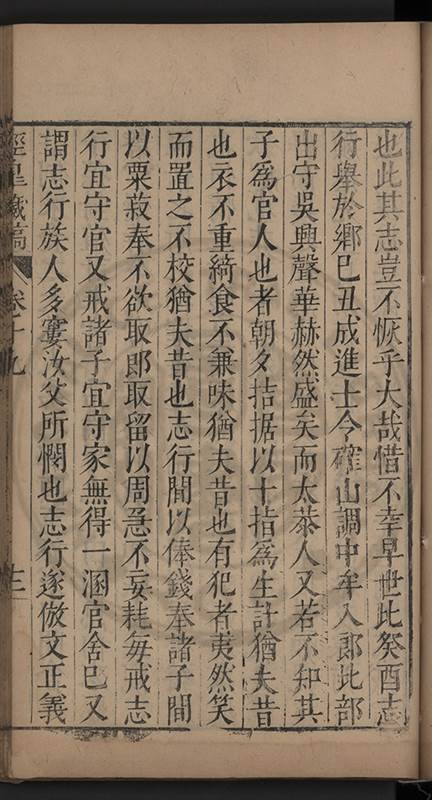 也此其志豈不恢乎大哉惜不幸早世比癸酉志
行舉於鄉巳丑成進士令確山調中牟入郎比部
出守吳興聲華赫然盛矣而太恭人又若不知其
子爲官人也者朝夕拮据以十指爲生計猶夫昔
也衣不重綺食不兼味猶夫昔也有犯者夷然笑
而置之不校猶夫昔也志行間以俸錢奉諸子間
以粟菽奉不欲取郎取留以周急不妄耗每戒志
行宜守官又戒諸子宜守家無得一溷官舍巳又
謂志行族人多寠汝父所憫也志行遂倣文正義
涇臯藏稿
卷十九
三